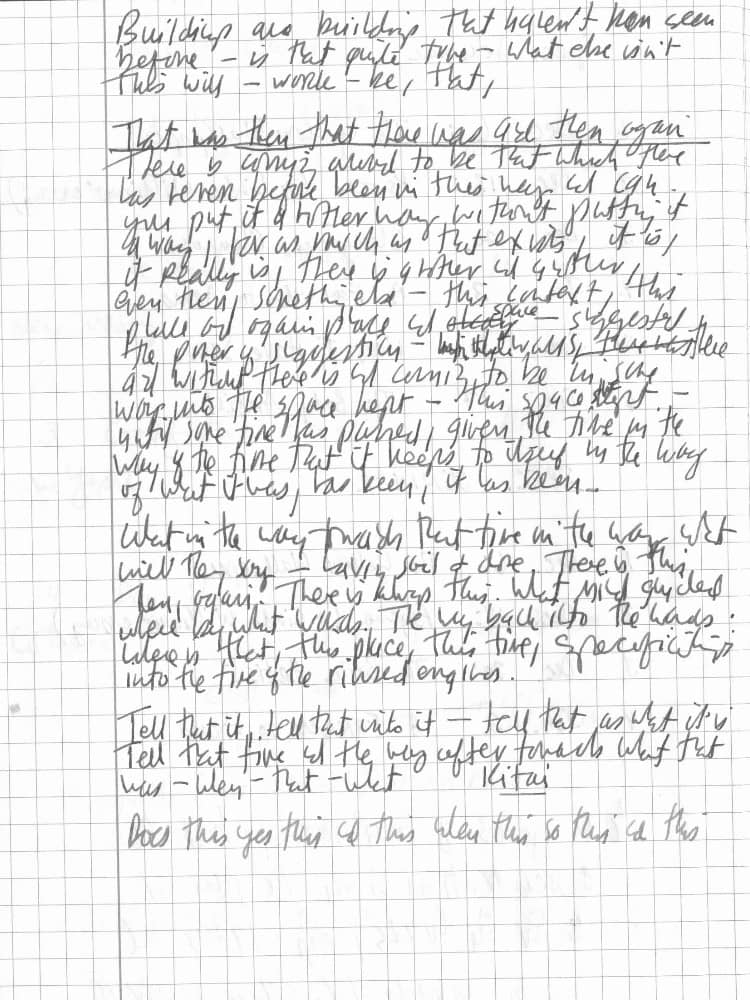 Buildings are buildings that haven't been seen
before – is that quite true – what else isn't
This will – work – be, that,
That was then that there was and then again
There is coming around to be that which there
has never before been in this way and can.
you put it another way without putting it
away, for as much as that exists, it is,
it really is, there is another and another,
even then, something else – this context, this
place and again place and space – suggested
the power of suggestion – walls, there
and without there is and coming to be in some
way into the space kept – this space kept –
until some time has passed, given the time in the
way of the time that it keeps to itself in the way
of what it was, has been, it has been...
What in the way towards that time in the way what
will they say – having said & done. There is this
then, again. There is always this. What mind guided
where by what words. The way back into the words.
where is that, this place, this time, specifications
into the time of the rinsed engines.
Tell that it, tell that into it – tell that as what it is
Tell that time and the way after towards what that
was – when – that – what Kitai
Does this yes this and this when this so this and this